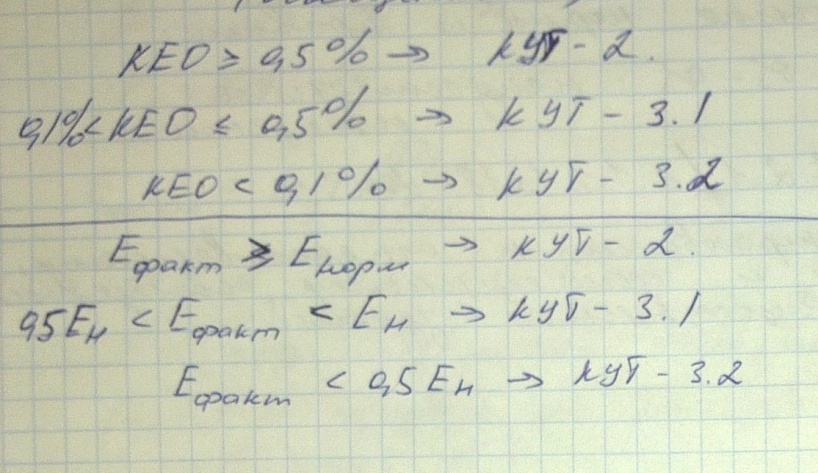 КЕО ≥ 0,5% → КУТ - 2.
0,1% < КЕО ≤ 0,5% → КУТ - 3.1
КЕО < 0,1% → КУТ - 3.2
Eфакт ≥ Eнорм → КУТ - 2.
0,5Eн < Eфакт < Eн → КУТ - 3.1
Eфакт < 0,5Eн → КУТ - 3.2